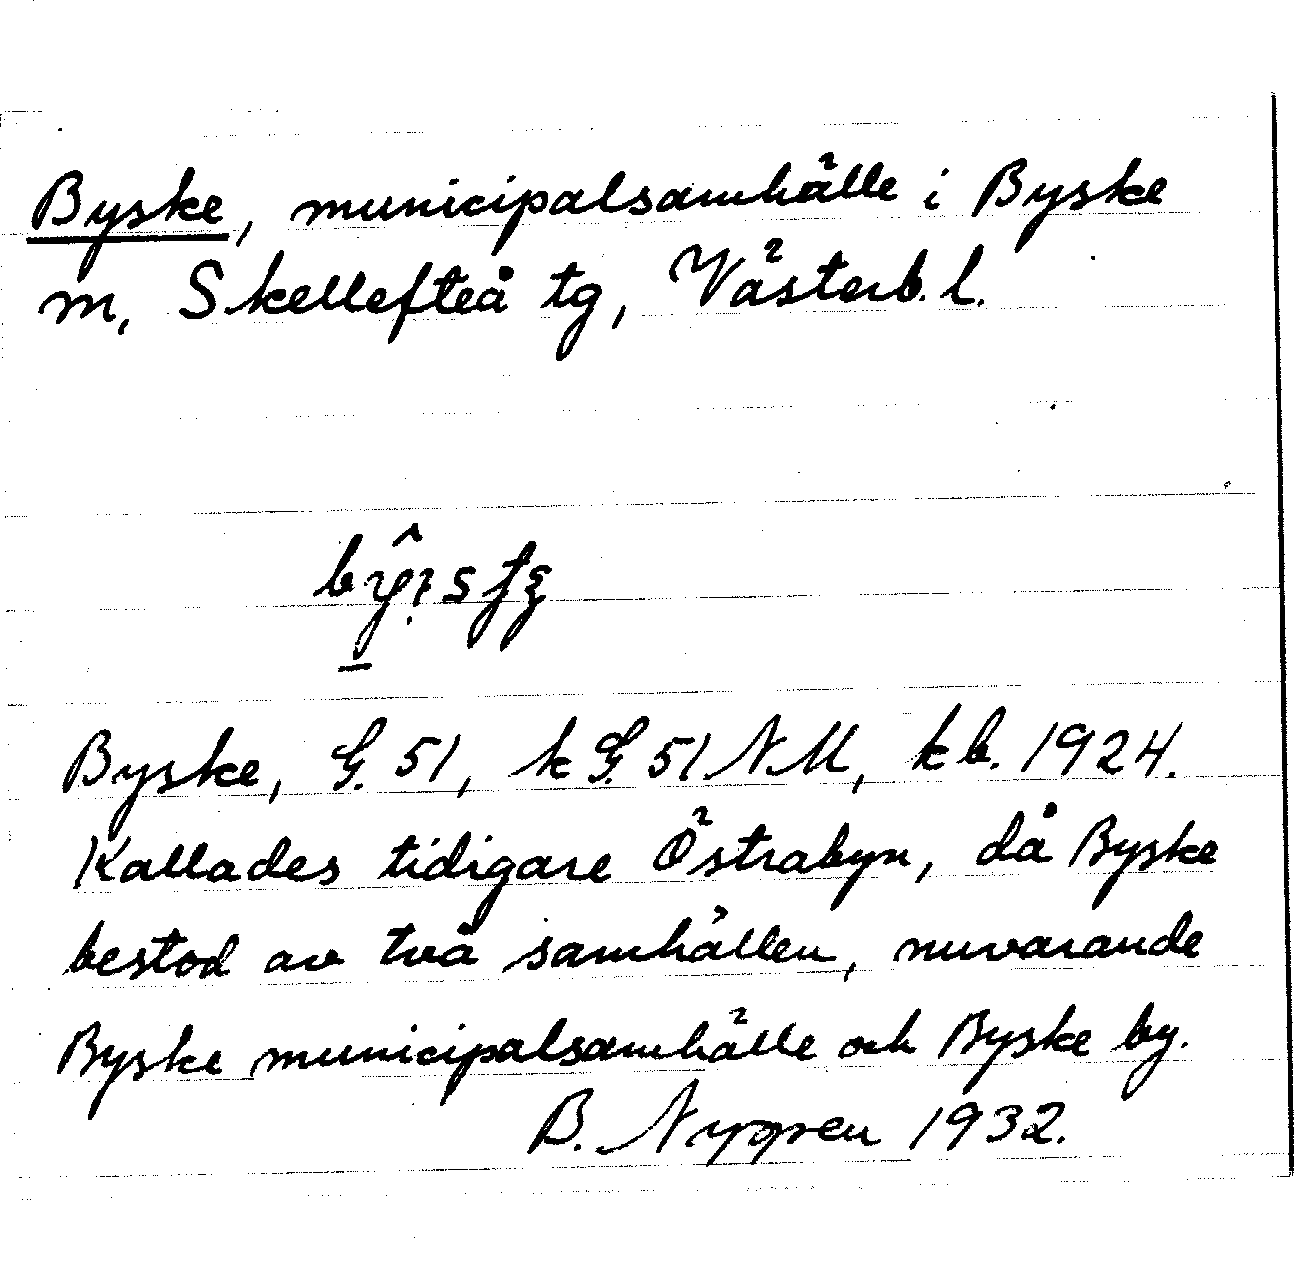 Byske, municipalsamhälle i Byske
m, Skellefteå tg, Västerb. l.
Byske, G. 51, k G. 51 NM, kb. 1924.
Kallades tidigare Östrabyn, då Byske
bestod av två samhällen, nuvarande
Byske municipalsamhälle och Byske by.
B. Nygren 1932.